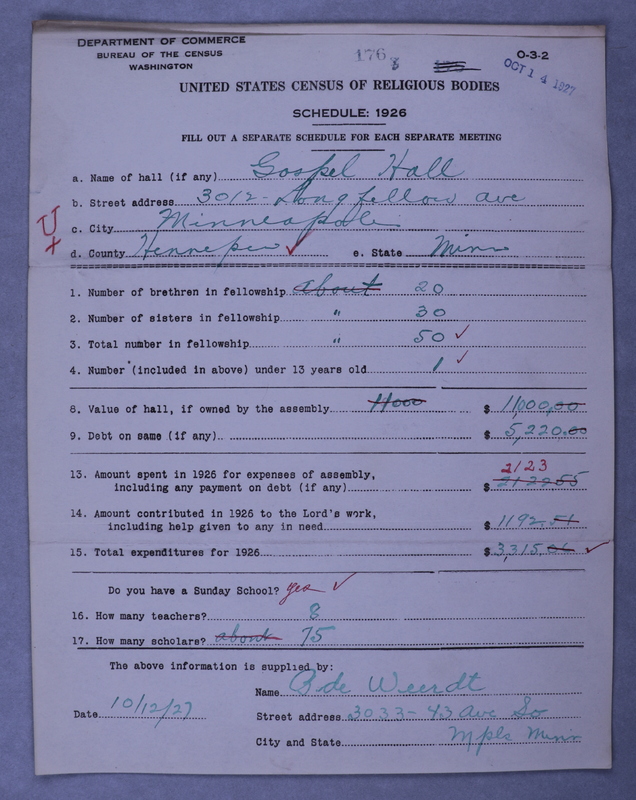 DEPARTMENT OF COMMERCE
BUREAU OF THE CENSUS
WASHINGTON
176
O-3-2
OCT 14 1927
UNITED STATES CENSUS OF RELIGIOUS BODIES
SCHEDULE: 1926
FILL OUT A SEPARATE SCHEDULE FOR EACH SEPARATE MEETING
a. Name of hall (if any) Gospel Hall
b. Street address 3012- Longfellow ave
c. City Minneapolis
d. County Hennepin ✓ e. State Minn
1. Number of brethren in fellowship about 20
2. Number of sisters in fellowship " 30
3. Total number in fellowship " 50 ✓
4. Number (included in above) under 13 years old 1 ✓
8. Value of hall, if owned by the assembly 11000 $ 11,000,00
9. Debt on same (if any) $ 5,220.00
13. Amount spent in 1926 for expenses of assembly, 2123
including any payment on debt (if any) $ 2122.55
14. Amount contributed in 1926 to the Lord's work,
including help given to any in need $ 1192.51
15. Total expenditures for 1926 $ 3,315. ✓
Do you have a Sunday School? yes ✓
16. How many teachers? 8
17. How many scholars? about 75
The above information is supplied by:
Name de Weerdt
Date 10/12/27 Street address 3033- 43 Ave So
City and State Mpls Minn